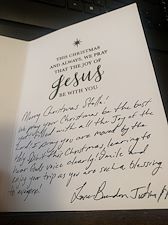 THIS CHRISTMAS
AND ALWAYS, WE PRAY
THAT THE JOY OF
Jesus
BE WITH YOU.
Merry Christmas
We pray your Christmas be the best
yet filled with all the Joy of the
Lord & pray you are moved by the
Holy Spirit this Christmas, learning to
hear God's voice clearly! Smile and
enjoy your trip as you are such a blessing
to everyone!
Love Brandon